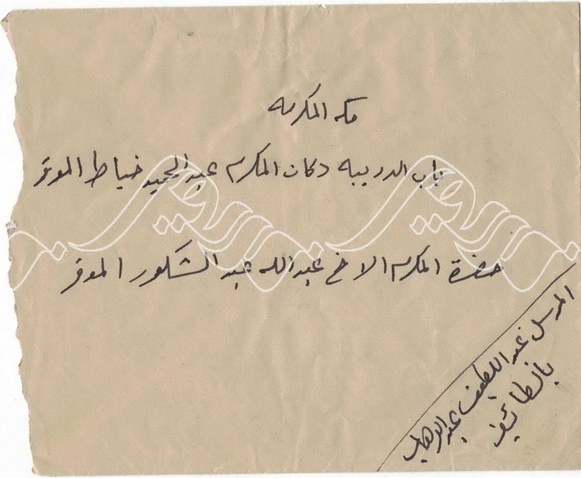 مكه المكرمه
باب الدريبه دكان المكرم عبدالحميد خياط الموقر
حضرة المكرم الاخ عبدالله عبد الشكور الموقر
المرسل عبداللطيف عبدالوهاب
بالطائف